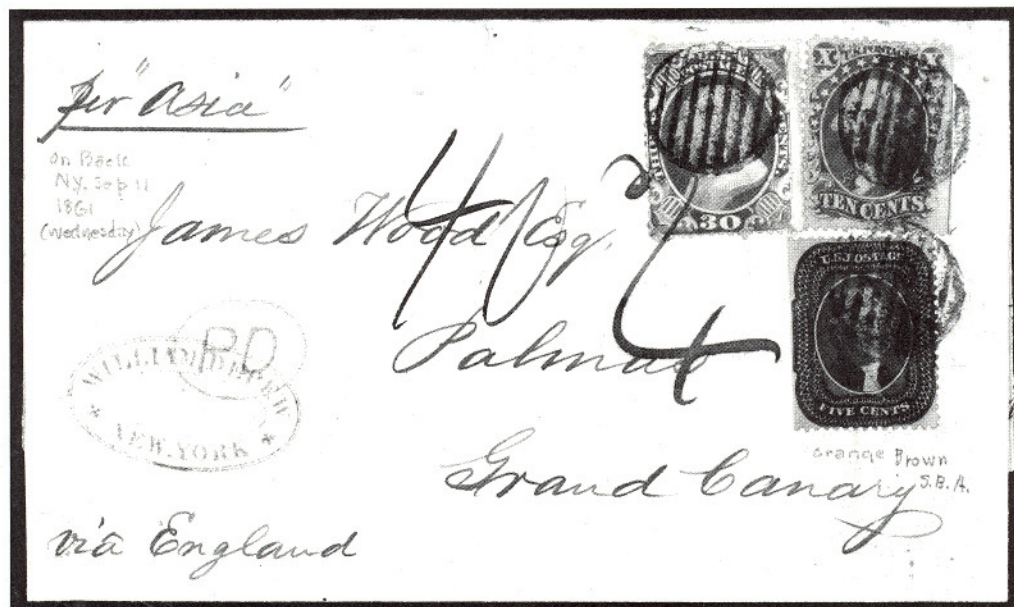 per "Asia"
on Back
NY. Sep 11
1861
(Wednesday)
James Wood Esq.
Palmas
Grand Canary
via England
PD
NEW YORK
30
X X
TEN CENTS
U.S. POSTAGE
FIVE CENTS
Orange Brown
S.B.A.